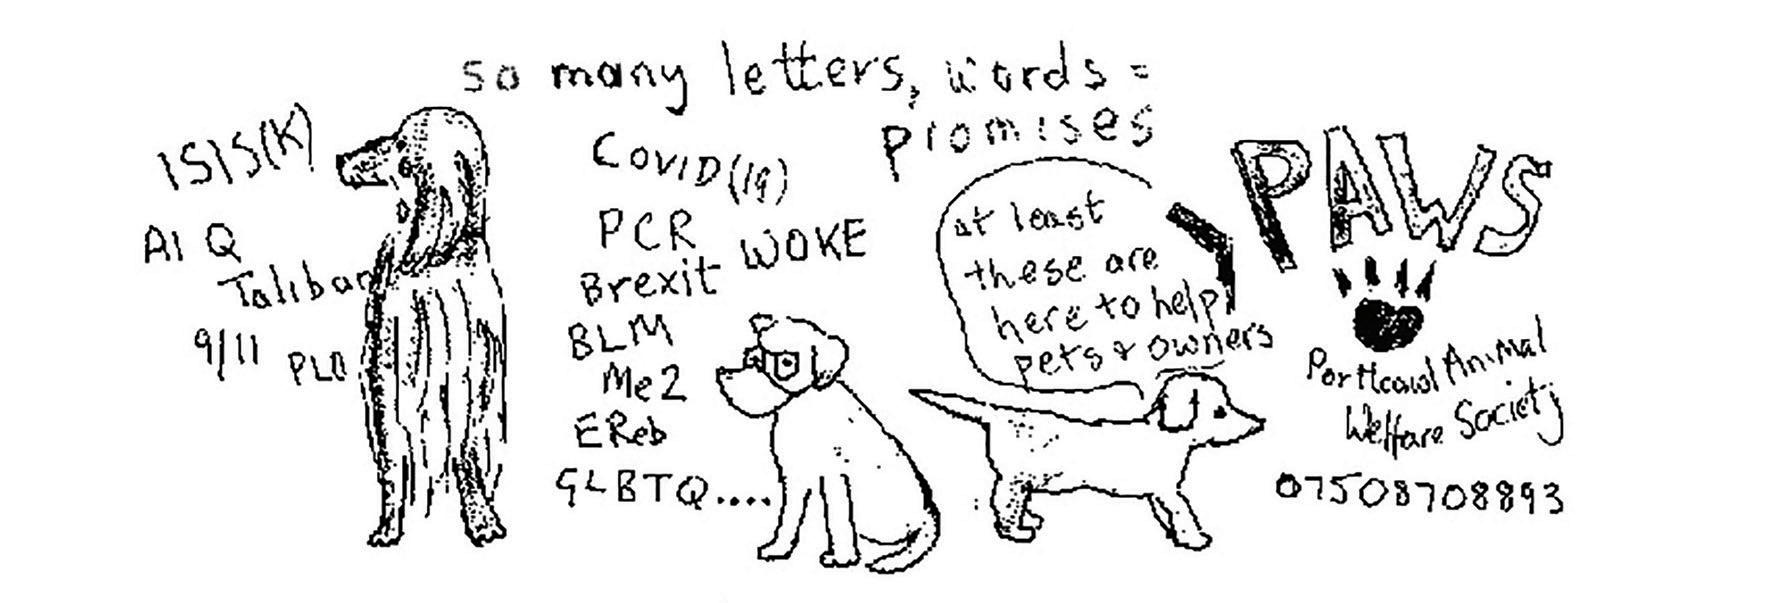 so many letters, words =
promises
ISIS(K)
Al Q
Taliban
9/11 PLO
COVID(19)
PCR
WOKE
Brexit
BLM
Me2
EReb
GLBTQ....
at least
these are
here to help
pets & owners
PAWS
Porthcawl Animal
Welfare Society
07508708893